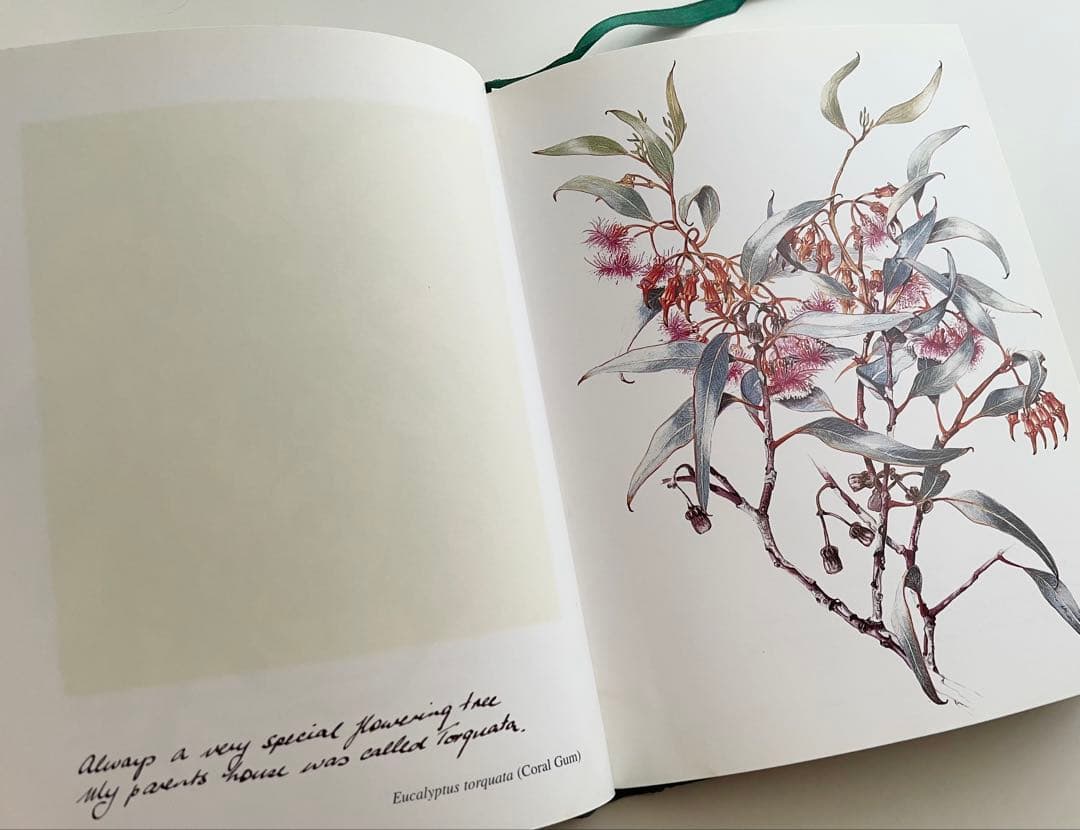 Always a very special flowering tree
My parents house was called Torquata.
Eucalyptus torquata (Coral Gum)